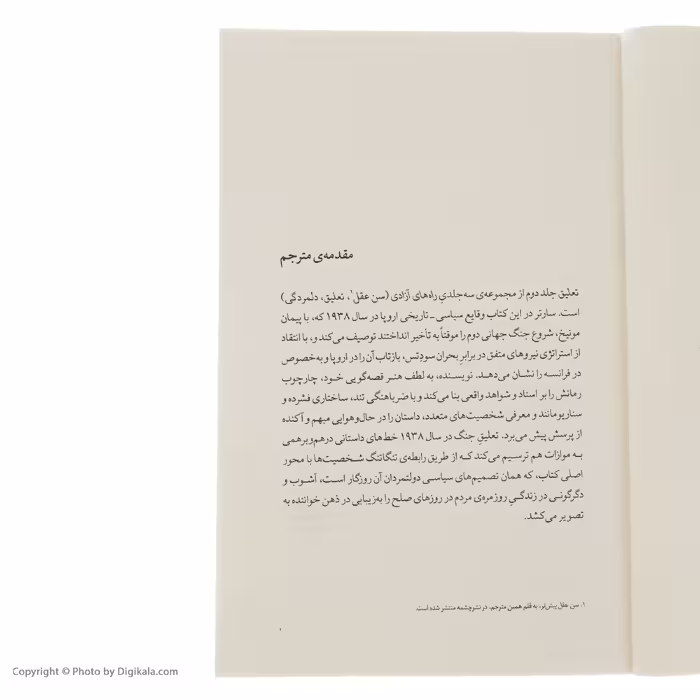 مقدمه‌ی مترجم
تعلیق جلد دوم از مجموعه‌ی سه‌جلدیِ راه‌های آزادی (سن عقل۱، تعلیق، دلمردگی)
است. سارتر در این کتاب وقایع سیاسی-تاریخی اروپا در سال ۱۹۳۸ که، با پیمان
مونیخ، شروع جنگ جهانی دوم را موقتاً به تأخیر انداختند توصیف می‌کند و، با انتقاد
از استراتژی نیروهای متفق در برابر بحران سودِتس، بازتاب آن را در اروپا و به‌خصوص
در فرانسه را نشان می‌دهد. نویسنده، به لطف هنر قصه‌گویی خود، چارچوب
رمانش را بر اسناد و شواهد واقعی بنا می‌کند و با ضرباهنگی تند، ساختاری فشرده و
سناریومانند و معرفی شخصیت‌های متعدد، داستان را در حال‌وهوایی مبهم و آکنده
از پرسش پیش می‌برد. تعلیقِ جنگ در سال ۱۹۳۸ خط‌های داستانی درهم‌وبرهمی
به موازات هم ترسیم می‌کند که از طریق رابطه‌ی تنگاتنگ شخصیت‌ها با محور
اصلی کتاب، که همان تصمیم‌های سیاسی دولتمردان آن روزگار است، آشوب و
دگرگونی در زندگیِ روزمره‌ی مردم در روزهای صلح را به‌زیبایی در ذهن خواننده به
تصویر می‌کشد.
۱. سن عقل پیش‌تر، به قلم همین مترجم، در نشرچشمه منتشر شده است.
Copyright © Photo by Digikala.com